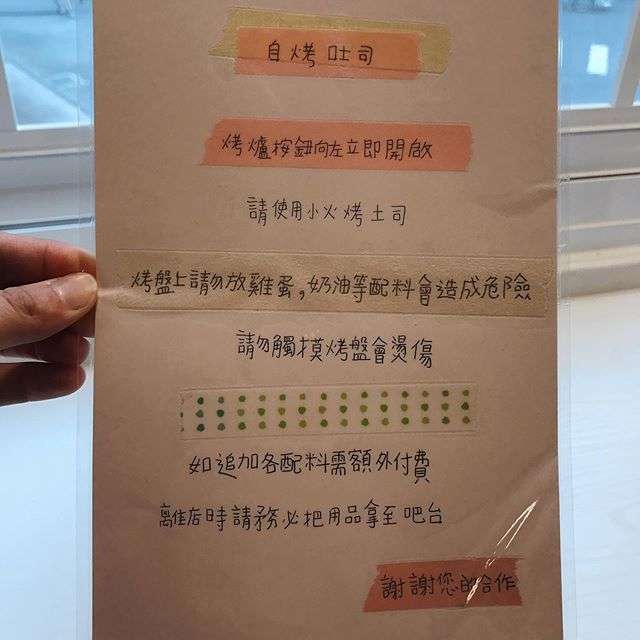 自烤吐司
烤爐按鈕向左立即開啟
請使用小火烤土司
烤盤上請勿放雞蛋,奶油等配料會造成危險
請勿觸摸烤盤會燙傷
如追加各配料需額外付費
離店時請務必把用品拿至吧台
謝謝您的合作